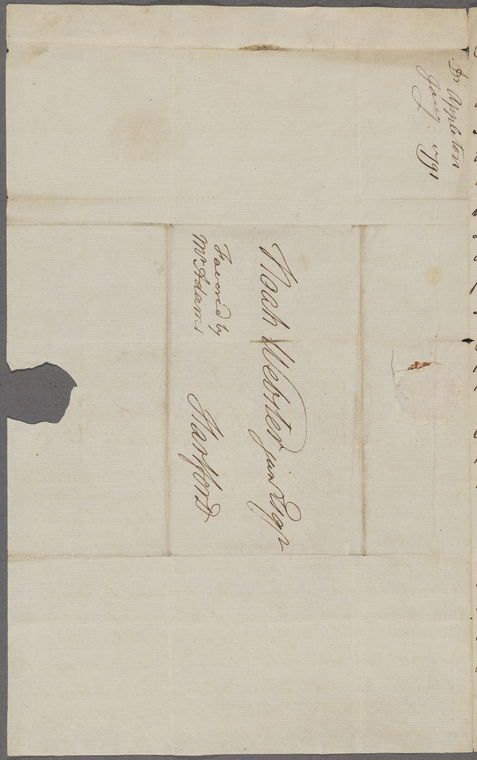 Dr Appleton
Jany. 1791
Noah Webster jun Esqr
Hartford
Favored by
Mr Adams